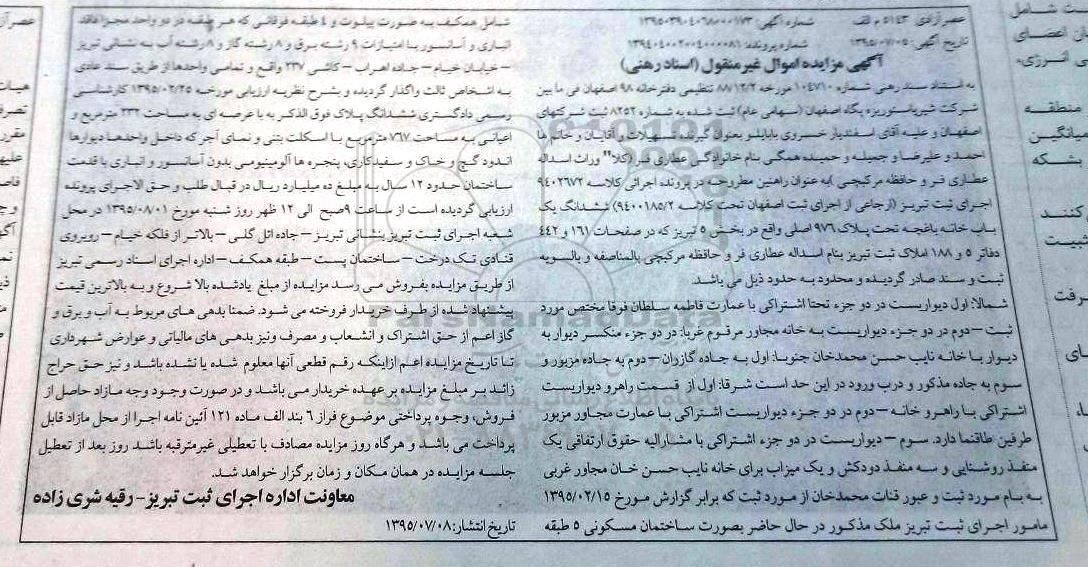 عصر آزادی ۵۱۴۳ م الف شماره آگهی: ۱۳۹۵۰۳۹۰۴۰۶۸۰۰۰۱۷۳
تاریخ آگهی: ۱۳۹۵/۰۷/۰۵ شماره پرونده: ۱۳۹۴۰۴۰۰۲۰۰۴۰۰۰۰۸۱
آگهی مزایده اموال غیرمنقول (اسناد رهنی)
به استناد سند رهنی شماره ۱۰۴۷۱۰ مورخه ۸۸/۱۲/۲ تنظیمی دفترخانه ۹۸ اصفهان فی ما بین
شرکت شیر پاستوریزه پگاه اصفهان (سهامی عام) ثبت شده به شماره ۸۲۵۲ ثبت شرکتهای
اصفهان و علیه آقای اسفندیار خسروی باباپلو بعنوان گیرنده تسهیلات و آقایان و خانم ها
احمد و علیرضا و جمیله و حمیده همگی بنام خانوادگی عطاری فر (کلا" وراث اسداله
عطاری فر و حافظه مرکبچی )به عنوان راهنین مطروحه در پرونده اجرائی کلاسه ۹۴۰۲۶۷۲
اجرای ثبت تبریز (ارجاعی از اجرای ثبت اصفهان تحت کلاسه ۹۴۰۰۱۸۵/۲) ششدانگ یک
باب خانه باغچه تحت پلاک ۹۷۶ اصلی واقع در بخش ۵ تبریز که در صفحات ۱۶۱ و ۴۴۲
دفاتر ۵ و ۱۸۸ املاک ثبت تبریز بنام اسداله عطاری فر و حافظه مرکبچی بالمناصفه و بالسویه
ثبت و سند صادر گردیده و محدود به حدود ذیل می باشد.
شمالا: اول دیواریست در دو جزء تحتا اشتراکی با عمارت فاطمه سلطان فوقا مختص مورد
ثبت – دوم در دو جزء دیواریست به خانه مجاور مرقوم غربا: در دو جزء منکسر دیوار به
دیوار با خانه نایب حسن محمدخان جنوبا: اول به جاده گازران – دوم به جاده مزبور و
سوم به جاده مذکور و درب ورود در این حد است شرقا: اول از قسمت راهرو دیواریست
اشتراکی با راهرو خانه – دوم در دو جزء دیواریست اشتراکی با عمارت مجاور مزبور
طرفین طاقنما دارد. سوم – دیواریست در دو جزء اشتراکی با مشارالیه حقوق ارتفاقی یک
منفذ روشنایی و سه منفذ دودکش و یک میزاب برای خانه نایب حسن خان مجاور غربی
به بام مورد ثبت و عبور قنات محمدخان از مورد ثبت که برابر گزارش مورخ ۱۳۹۵/۰۲/۱۵
مامور اجرای ثبت تبریز ملک مذکور در حال حاضر بصورت ساختمان مسکونی ۵ طبقه
شامل همکف به صورت پیلوت و ۴ طبقه فوقانی که هر طبقه در دو واحد مجزا فاقد
انباری و آسانسور با امتیازات ۹ رشته برق و ۸ رشته گاز و ۸ رشته آب به نشانی تبریز
– خیابان خیام – جاده اهراب – کاشی ۲۳۷ واقع و تمامی واحدها از طریق سند عادی
به اشخاص ثالث واگذار گردیده و بشرح نظریه ارزیابی مورخه ۱۳۹۵/۰۲/۲۵ کارشناسی
رسمی دادگستری ششدانگ پلاک فوق الذکر به با عرصه ای به مساحت ۲۳۲ مترمربع و
اعیانی به مساحت ۷۶۷ مترمربع با اسکلت بتنی و نمای آجر که داخل واحدها دیوارها
اندود گچ و خاک و سفیدکاری، پنجره ها آلومینیومی بدون آسانسور و انباری با قدمت
ساختمان حدود ۱۲ سال به مبلغ ده میلیارد ریال در قبال طلب و حق الاجرای پرونده
ارزیابی گردیده است از ساعت ۹ صبح الی ۱۲ ظهر روز شنبه مورخ ۱۳۹۵/۰۸/۰۱ در محل
شعبه اجرای ثبت تبریز بنشانی تبریز – جاده ائل گلی – بالاتر از فلکه خیام – روبروی
قنادی تک درخت – ساختمان پست – طبقه همکف – اداره اجرای اسناد رسمی تبریز
از طریق مزایده بفروش می رسد مزایده از مبلغ یادشده بالا شروع و به بالاترین قیمت
پیشنهاد شده از طرف خریدار فروخته می شود. ضمنا بدهی های مربوط به آب و برق و
گاز اعم از حق اشتراک و انشعاب و مصرف ونیز بدهی های مالیاتی و عوارض شهرداری
تا تاریخ مزایده اعم ازاینکه رقم قطعی آنها معلوم شده یا نشده باشد و نیز حق حراج
زائد بر مبلغ مزایده بر عهده خریدار می باشد و در صورت وجود وجه مازاد حاصل از
فروش، وجوه پرداختی موضوع فراز ۶ بند الف ماده ۱۲۱ آئین نامه اجرا از محل مازاد قابل
پرداخت می باشد و هرگاه روز مزایده مصادف با تعطیلی غیرمترقبه باشد روز بعد از تعطیل
جلسه مزایده در همان مکان و زمان برگزار خواهد شد.
معاونت اداره اجرای ثبت تبریز – رقیه شری زاده
تاریخ انتشار: ۱۳۹۵/۰۷/۰۸